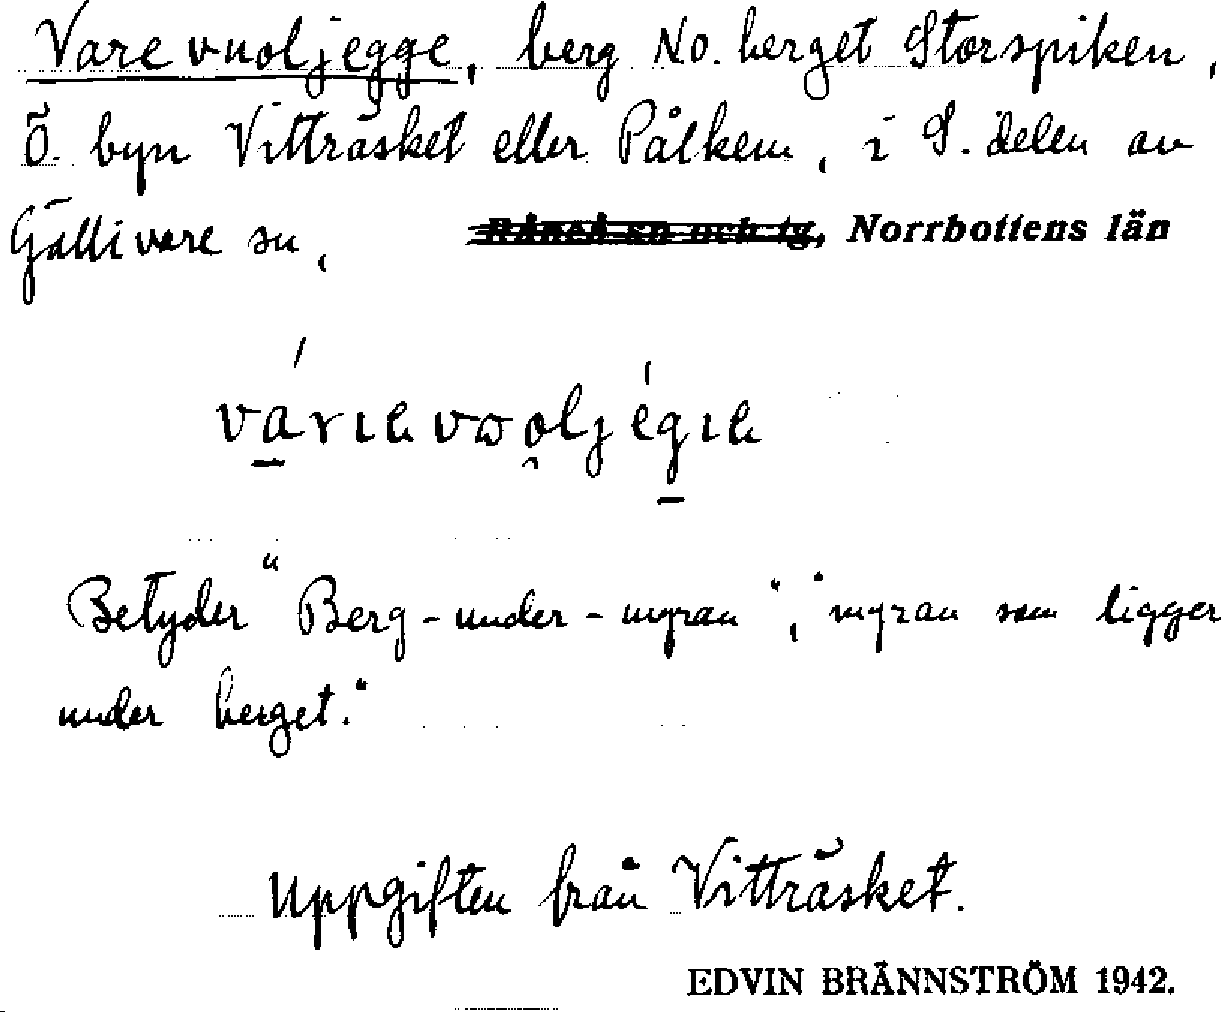 Varevuoljegge, berg No. berget Storspiken,
Ö. byn Vitträsket eller Pålkem, i S. delen av
Gällivare sn, ~~Råneå sn och tg,~~ Norrbottens län
Betyder "Berg-under-myran", "myran som ligger
under berget."
Uppgiften från Vitträsket.
EDVIN BRÄNNSTRÖM 1942.